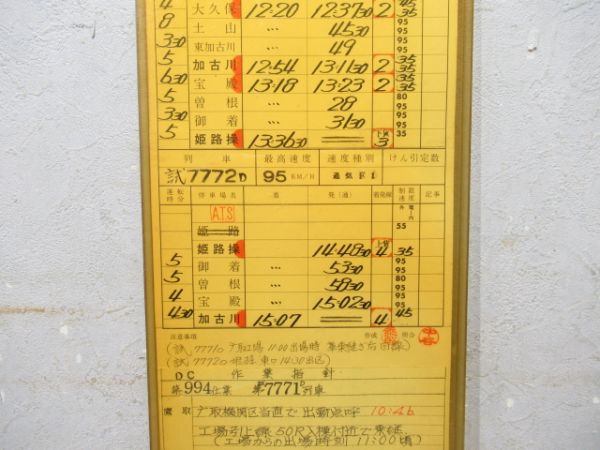 4 大久保 12:20 12:37 30 2 45 35
8 土山 … 45 30 95
3 30 東加古川 … 49 95
5 加古川 12:54 13:11 30 2 35 35
6 30 宝殿 13:18 13:23 2 35 35
5 曽根 … 28 80 95
3 30 御着 … 31 30 95
5 姫路操 13:36 30 3 35
列車 最高速度 速度種別 けん引定数
試7772D 95 KM/H 通気F1
運転時分 停車場名 着 発(通) 着発線 制限速度 記事
ATS
姫路 55
姫路操 14:48 30 4 35
5 御着 … 53 30 95
5 曽根 … 58 30 95
4 宝殿 … 15:02 30 95
4 30 加古川 15:07 4 45
注意事項 作成 照合
(試)7771D
(試)7772D 14:30出区)
DC 作業指針
第994仕業 第7771D列車
鷹取 鷹取機関区当直で出勤点呼 10:46
工場引上線50R入換付近で乗継
(工場からの出場時刻 11:00頃)